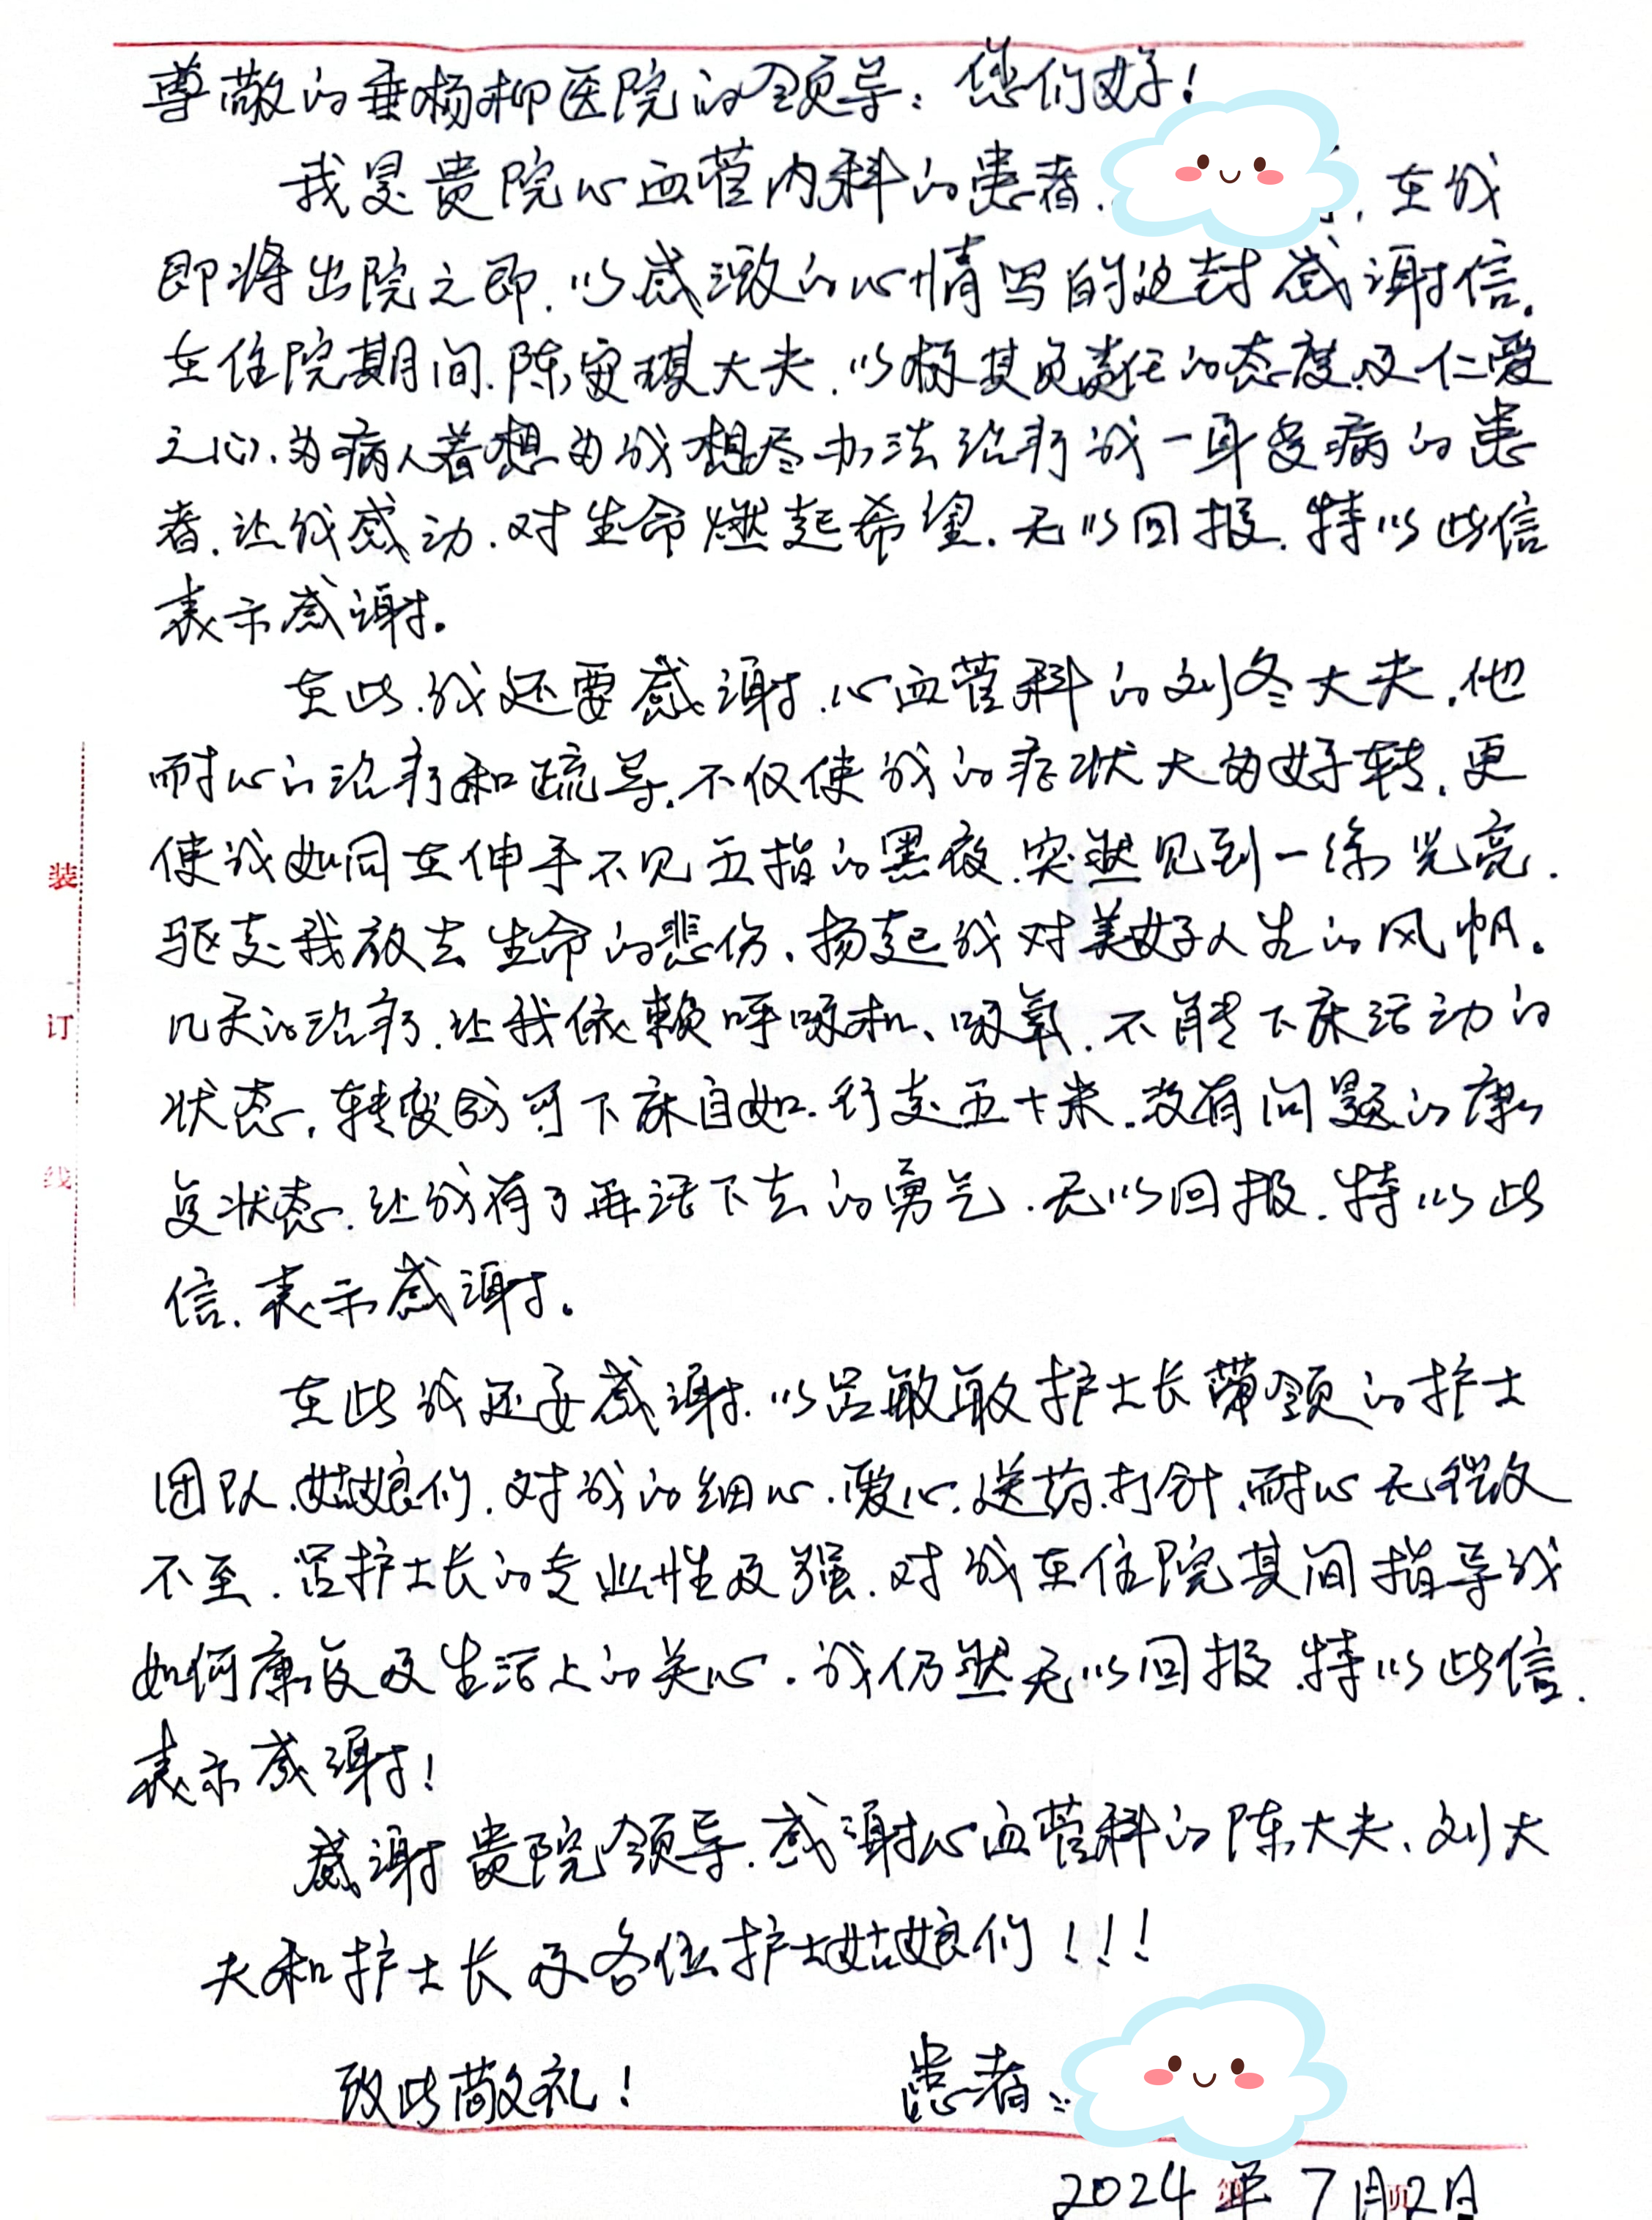 尊敬的垂杨柳医院的领导：您们好！
我是贵院心血管内科的患者. ，在我
即将出院之即.以感激的心情写的这封感谢信.
在住院期间.陈安琪大夫.以极其负责任的态度及仁爱
之心、为病人着想为我想尽办法治疗我一身多病的患
者.让我感动.对生命燃起希望.无以回报.特以此信
表示感谢。
在此.我还要感谢.心血管科的刘冬大夫.他
耐心的治疗和疏导.不仅使我的症状大为好转.更
使我如同在伸手不见五指的黑夜.突然见到一缕光亮.
驱走我放去生命的悲伤.扬起我对美好人生的风帆。
几天的治疗.让我依赖呼吸机、吸氧.不能下床活动的
状态.转变成可下床自如.行走五十米.没有问题的康
复状态.让我有了再活下去的勇气.无以回报.特以此
信.表示感谢。
在此我还要感谢.以吕敏敏护士长带领的护士
团队.姑娘们.对我的细心.爱心.送药.打针.耐心无微
不至.吕护士长的专业性及强.对我在住院其间指导我
如何康复及生活上的关心.我仍然无以回报.特以此信.
表示感谢！
感谢贵院领导.感谢心血管科的陈大夫、刘大
夫和护士长及各位护士姑娘们！！！
致此敬礼！ 患者：
2024年7月2日
装
订
线